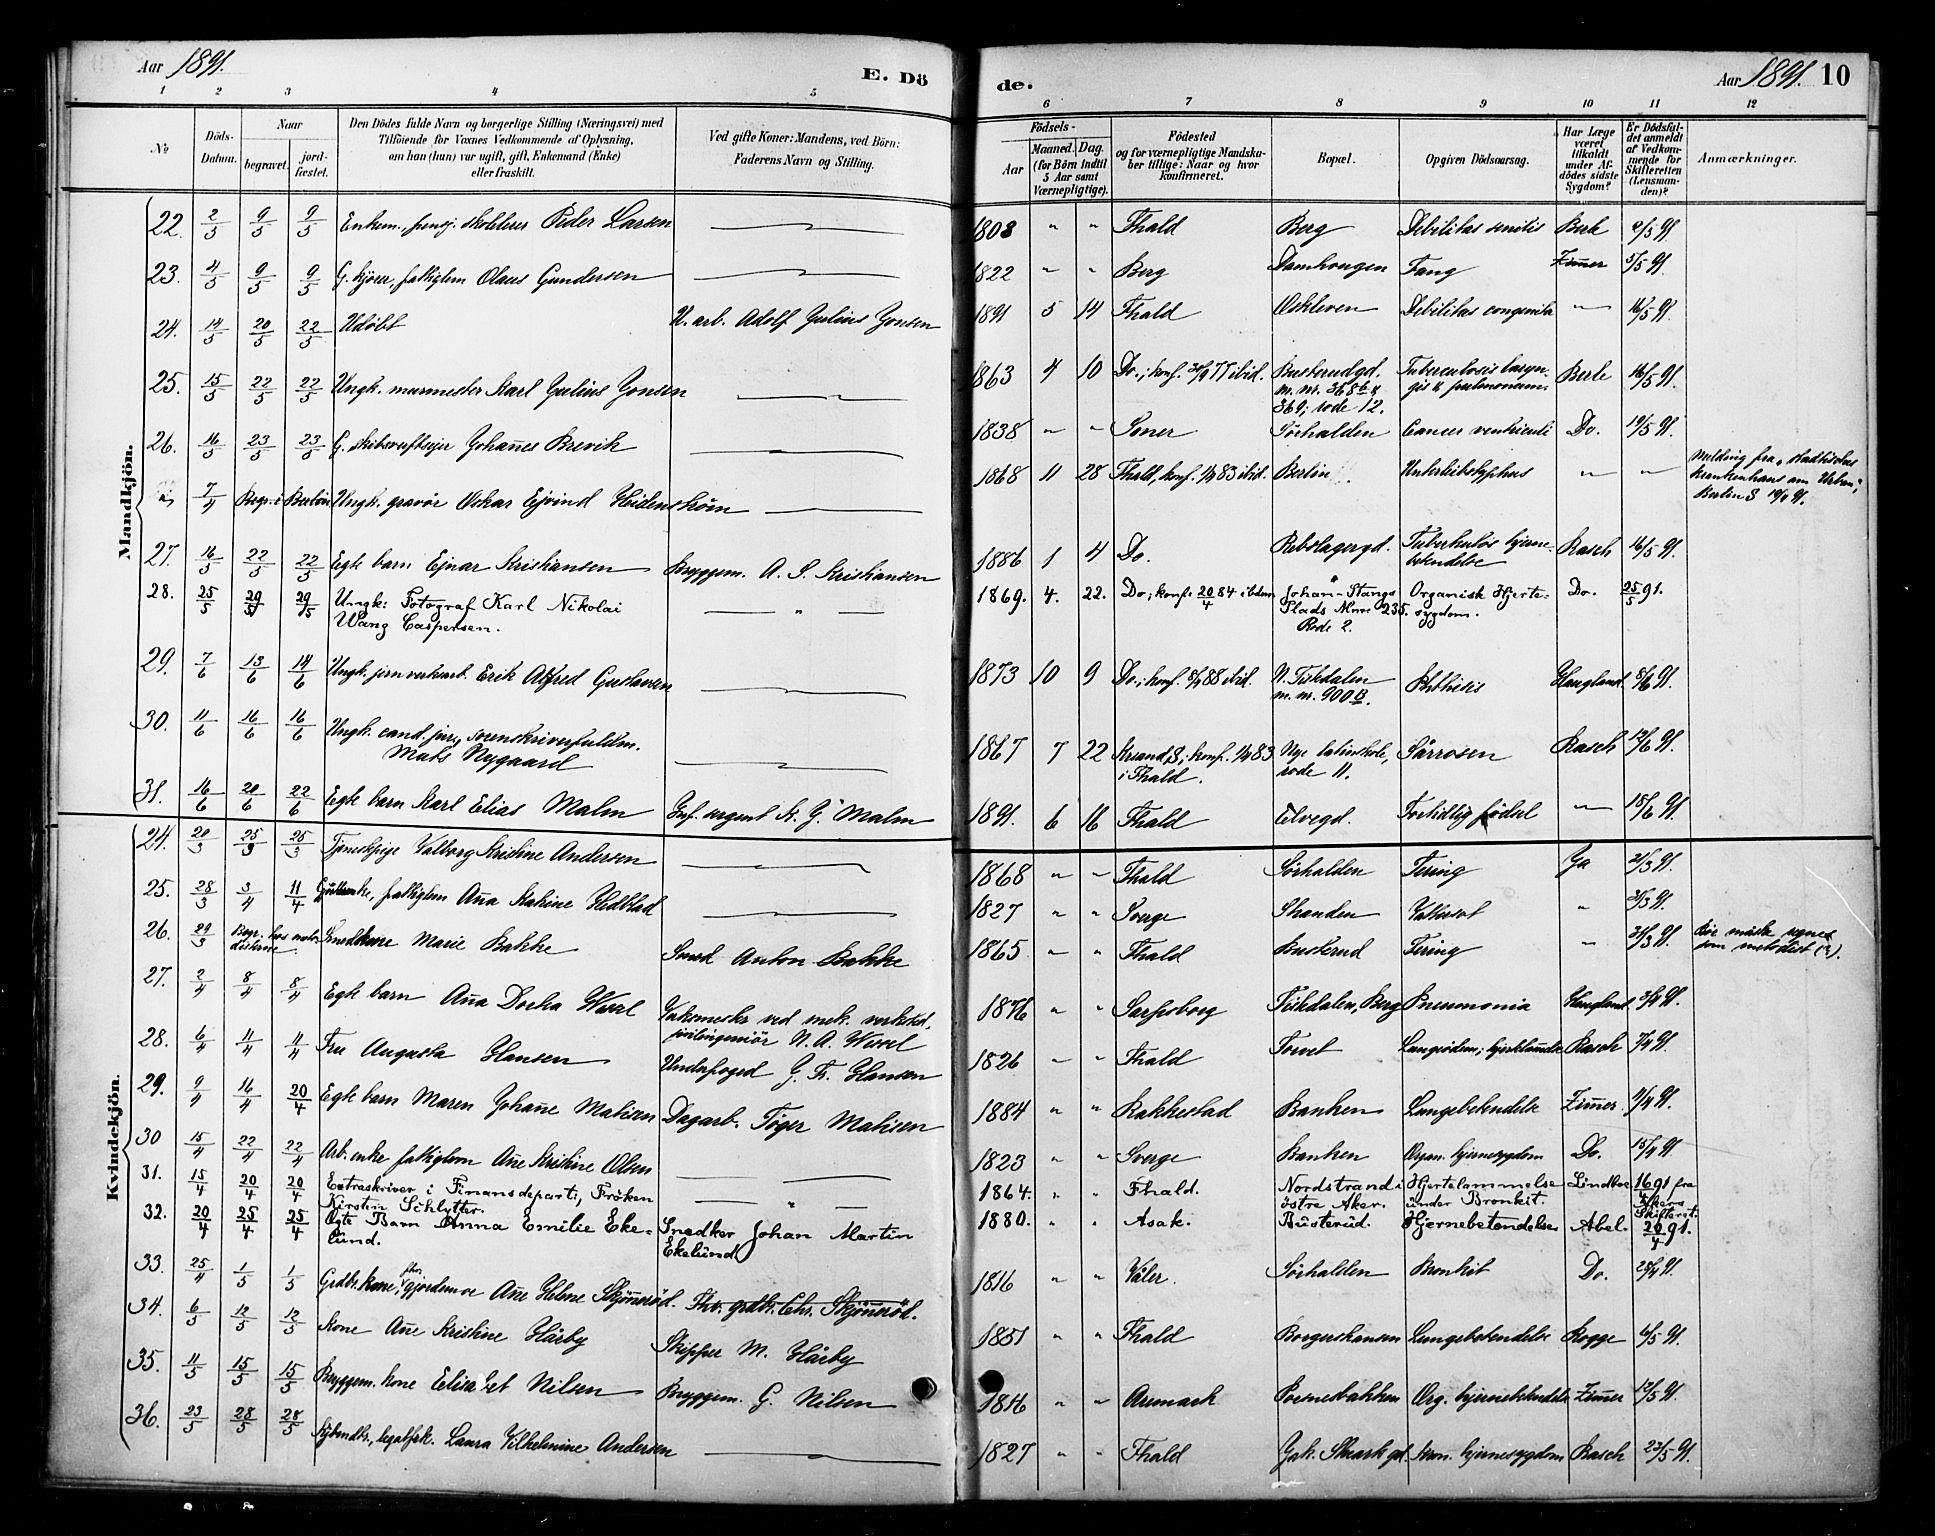 Aar 1891.
E. Dö
de.
Aar 1891. 10
1 2 3 4 5 6 7 8 9 10 11 12
No
Döds-
Datum.
Naar
begravet.
jord-
fæstet.
Den Dödes fulde Navn og borgerlige Stilling (Næringsvei) med
Tilföiende for Voxnes Vedkommende af Oplysning,
om han (hun) var ugift, gift, Enkemand (Enke)
eller fraskilt.
Ved gifte Koner: Mandens, ved Börn:
Faderens Navn og Stilling.
Födsels-
Aar
Maaned. Dag.
(for Börn indtil
5 Aar samt
Værnepligtige).
Födested
og for værnepligtige Mandska-
ber tillige: Naar og hvor
konfirmeret.
Bopæl.
Opgiven Dödsaarsag.
Har Læge
været
tilkaldt
under Af-
dödes sidste
Sygdom?
Er Dödsfal-
det anmeldt
af Vedkom-
mende for
Skifteretten
(Lensman-
den)?
Anmærkninger.
Mandkjön.
22. 2/5 9/5 9/5 Enkem., Peder Larsen 1803 " " Fhald Berg Debilitas senilis Berle 2/5 91.
23. 4/5 9/5 9/5 G. kjörer, fattiglem Olaus Gundersen 1822 " " Berg Damhaugen Fang Zimer 5/5 91.
24. 14/5 20/5 22/5 Udöbt U. arb. Adolf Julius Jonsen 1891 5 14 Fhald Oskleven Debilitas congenita — 16/5 91.
25. 15/5 22/5 22/5 Ungk. murmester Karl Julius Jonsen 1863 4 10 Do.; konf. 30/9 77 ibid. Busterudgd.
m. nr. 368b &
369; rode 12. Tuberculosis laryn-
gis & pulmonum. Berle 16/5 91.
26. 16/5 23/5 23/5 G. Johañes Brevik 1838 " " Soner Sörhalden Cancer ventriculi Do. 19/5 91.
" 7/4 Begr. i Berlin Ungk. gravör Oskar Ejvind Heidenstrøm 1868 11 28 Fhald, konf. 83 ibid. Berlin. Unterleibstyphus " " Melding fra "stadtisches
Krankenhaus am Urban",
Berlin S 19/4 91.
27. 16/5 22/5 22/5 Egte barn Ejnar Kristiansen Bryggem. A. S. Kristiansen 1886 1 4 Do. Rebslagergd. Tuberkuløs hjerne-
betendelse Rasch 16/5 91.
28. 25/5 29/5 29/5 Ungk: Fotograf Karl Nikolai
Wang Caspersen. 1869. 4. 22. Do; konf. 20/4 84 ibidem Johan Stangs
Plads Mnr 235.
Rode 2. Organisk Hjerte-
sygdom. Do. 25/5 91.
29. 7/6 13/6 14/6 Ungk. jernverksarb. Erik Alfred Gustavsen 1873 10 9 Do.; konf. 88 ibid. N. Tistedalen
m. nr. 900B. Phthisis Haugland 8/6 91.
30. 11/6 16/6 16/6 Ungk. cand. jur., sorenskriverfuldm.
Mats Nygaard 1867 7 22 Krsand S; konf. 83
i Fhald. Nye latinskole,
rode 11. Sårrosen Rasch 12/6 91.
31. 16/6 20/6 22/6 Egte barn Karl Elias Malm Inf. sergent K. G. Malm 1891. 6 16 Fhald Elvegd. Fortidlig födsel " 15/6 91.
Kvindekjön.
24. 20/3 25/3 25/3 Tjenestpige Valborg Kristine Andersen 1868 " " Fhald Sörhalden Tæring Ja 21/3 91.
25. 28/3 3/4 11/4 fattiglem Aña Katrine Hedblad 1827 " " Sverge Stranden " 31/3 91.
26. 29/3 Begr. hos meto-
disterne. Smedkone Marie Bakke Smed Anton Bakke 1865 " " Fhald Busterud Tæring " 31/3 91. Bör måske regnes
som metodist (?).
27. 2/4 8/4 8/4 Egte barn Aña Dorka Værkmester ved mek. verksted,
civilingeniör N. A. 1876 " " Sarpsborg Tistedalen, Berg Pneumonia Haugland 3/4 91.
28. 6/4 11/4 11/4 Fru Augusta Hansen Underfoged G. Fr. Hansen 1826 " " Fhald Torvet Lungeödem; Rasch 7/4 91.
29. 9/4 16/4 20/4 Egte barn Maren Johañe Matisen Dagarb. Töger Matisen 1884 " " Rakkestad Banken Lungebetendelse Zimer. 91.
30 15/4 22/4 22/4 Arb. enke fattiglem Añe Kristine Olsen 1823 " " Sverge Banken Organ. hjernesygdom Do. 15/4 91.
31. 15/4 20/4 20/4 Extraskriver i Finansdeparti, Fröken
Kirstin Schlytter. 1864. " " Fhald. Nordstrand i
östre Aker. Hjertelammelse
under Bronkit. Lindboe 16/4 91 fra
Akers
Skifteret.
32. 20/4 25/4 25/4 Ægte Barn Anna Emilie Eke-
lund. Snedker Johan Martin
Ekelund 1880. " " Asak. Busterud. Hjernebetendelse Abel. 20/4 91.
33. 25/4 1/5 1/5 Grdbr.kone, fhv. gjordemor Añe Helene Skjöñeröd. Fhv. grdbr. Chr. Skjöñeröd. 1816 " " Våler. Sörhalden Bronkit Do. 28/4 91.
34. 6/5 12/5 12/5 Kone Añe Kristine Hårby Skipper M. Hårby 1851 " " Fhald Borgershausen Lungebetendelse Rogge 6/5 91.
35. 11/5 15/5 15/5 Bryggem. kone Elisabet Nilsen Bryggem. G. Nilsen 1816 " " Aremark Org. hjernebetendelse Zimer 12/5 91.
36. 23/5 28/5 28/5 Laura Vilhelmine Andersen 1827 " " Fhald Jak. hjernesygdom Rasch 23/5 91.